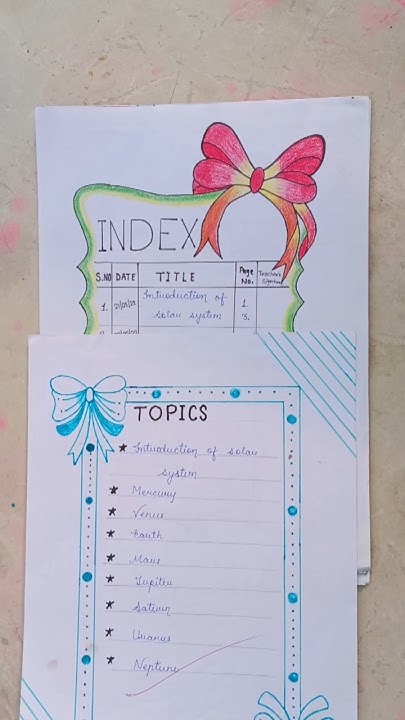 INDEX
S.NO DATE TITLE Page No. Teacher's
1. Introduction of 1.
solar system 3.
TOPICS
★ Introduction of solar
system
★ Mercury
★ Venus
★ Earth
★ Mars
★ Jupiter
★ Saturn
★ Uranus
★ Neptune